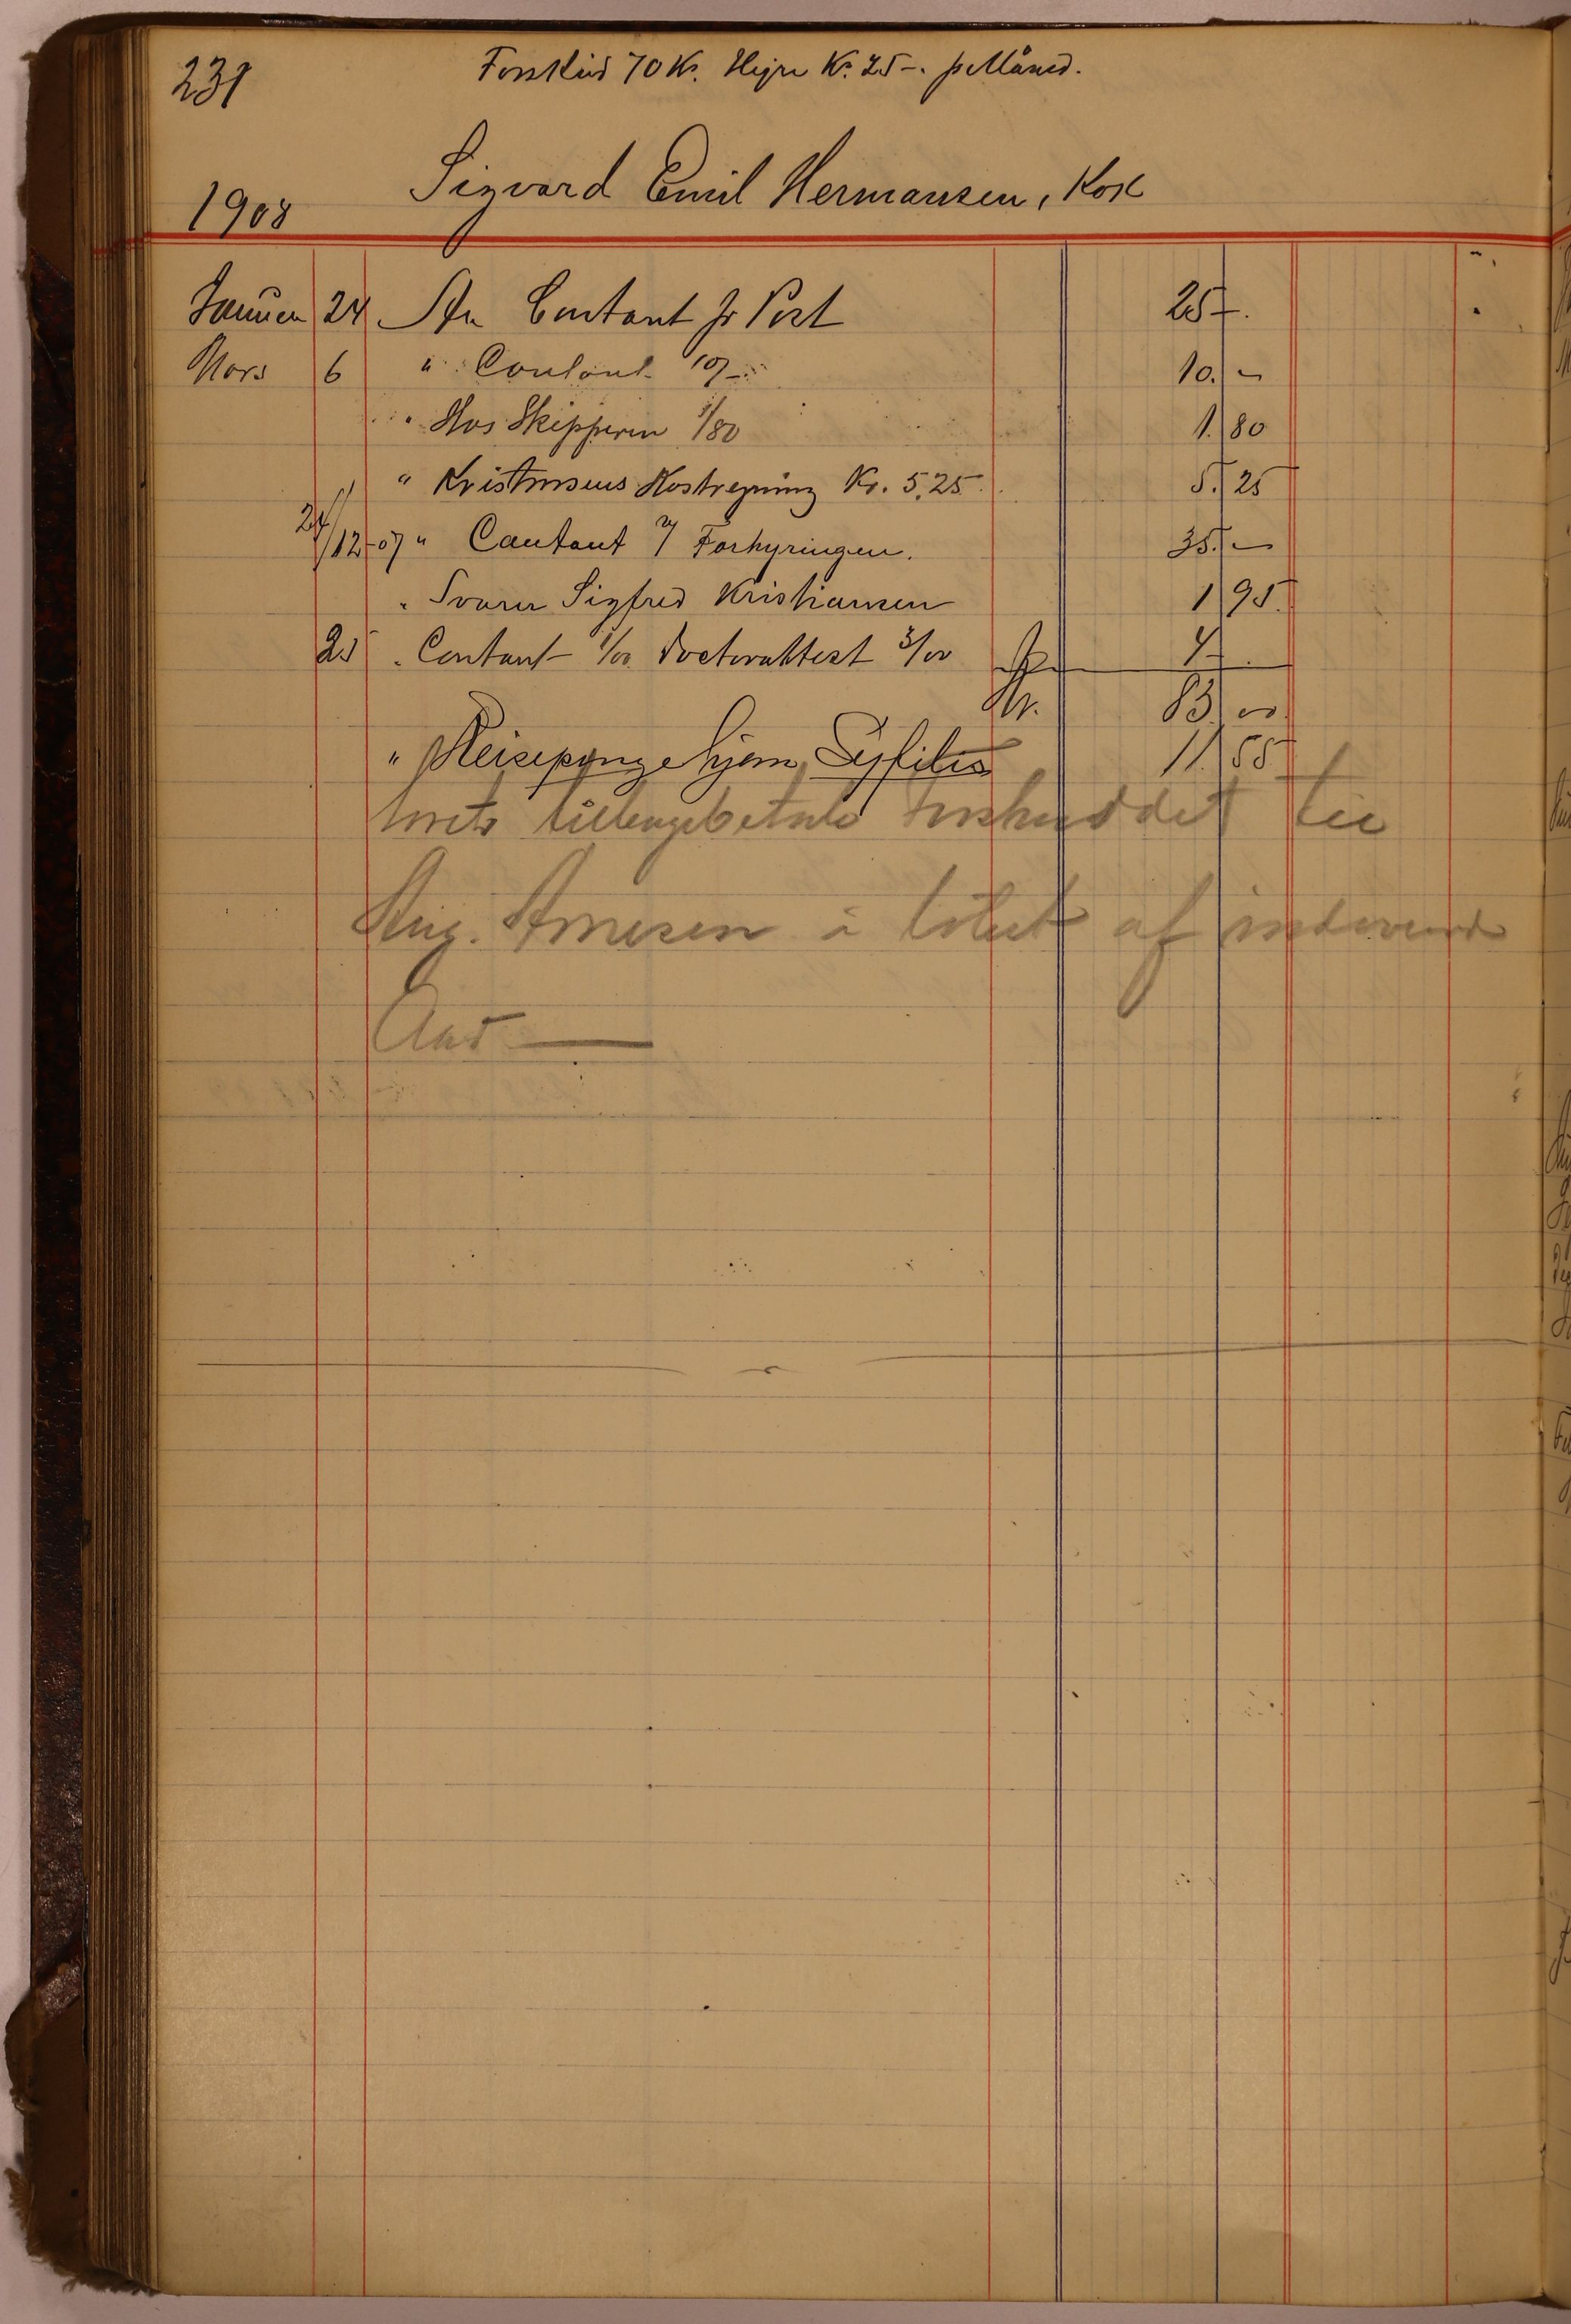 231
Forskud 70 Kr. Hyre Kr. 25-. pr Måned.
1908 Sigvard Emil Hermansen, Kok
Januar 24 An Contant pr Post 25 -.
Mars 6 " Contant 10/- 10. -
" Hos Skipperen 1/80 1. 80
" Kristensens Kostregning Kr. 5,25 5. 25
24/12-07 " Contant v/ Forhyringen. 35. -
" Svarer Sigfred Kristiansen 1 95.
25 " Contant 1/00 Doctorattest 3/00 4 -
Kr. 83. 00.
" Reisepenge hjem, Syfilis 11. 55
lovet tilbagebetale Forskuddet til
Aug. Arnesen i løbet af
Aar